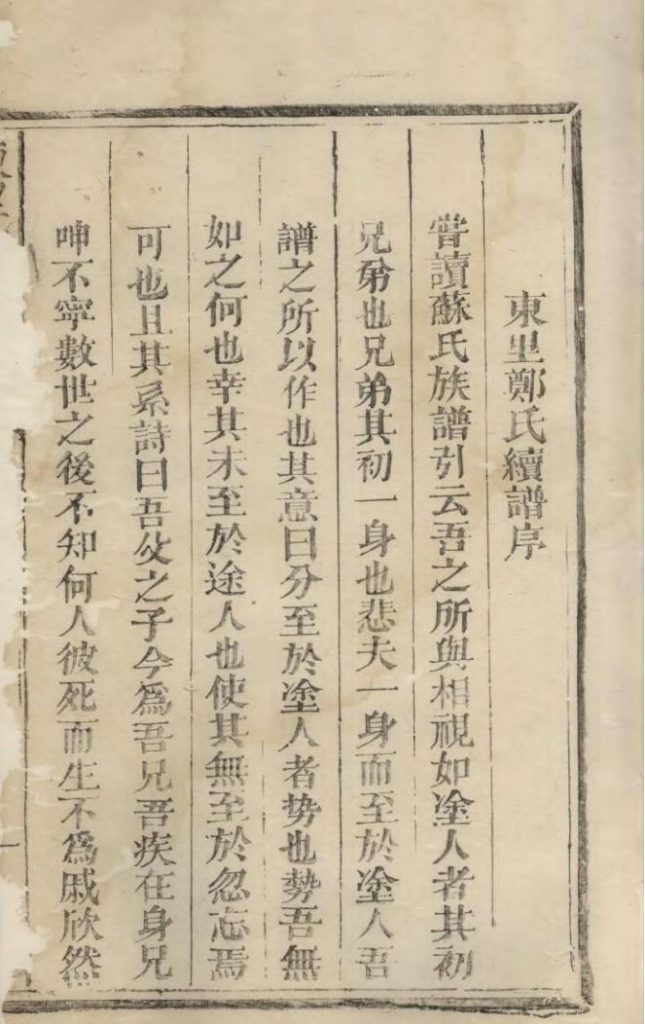 東里鄭氏續譜序
甞讀蘇氏族譜引云吾之所與相視如塗人者其初
兄弟也兄弟其初一身也悲夫一身而至於塗人吾
譜之所以作也其意曰分至於塗人者势也勢吾無
如之何也幸其未至於途人也使其無至於忽忘焉
可也且其系詩曰吾父之子今為吾兄吾疾在身兄
呻不寧數世之後不知何人彼死而生不為戚欣然